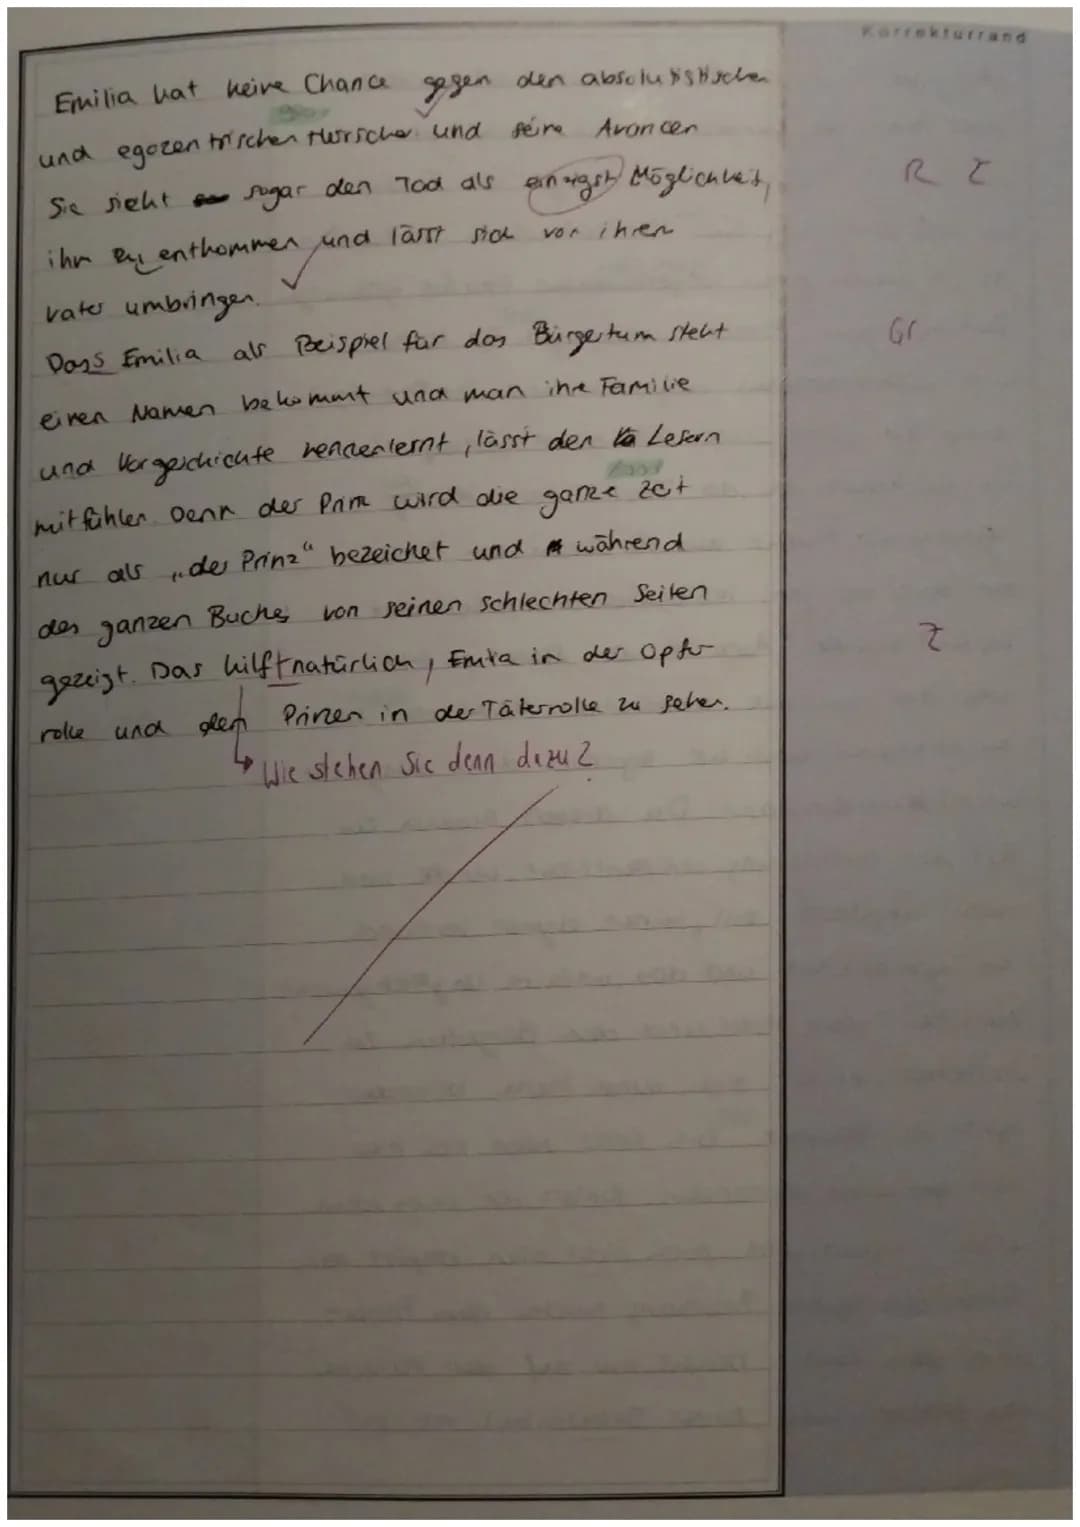 Korrekturrand
Emilia hat keine Chance gegen den absolutistischen
und egozentrischen Herrscher und seine Avancen
Sie sieht sogar den Tod als einzigst Möglichkeit,
R Z
ihm zu entkommen und lässt sich von ihren
Vater umbringen.
Dass Emilia als Beispiel für das Bürgertum steht
Gr
einen Namen bekommt und man ihre Familie
und Vorgeschichte kennenlernt, lässt den Lesern
mitfühlen. Denn der Prinz wird die ganze Zeit
nur als „der Prinz“ bezeichet und während
des ganzen Buches von seinen schlechten Seiten
Z
gezeigt. Das hilft natürlich, Emilia in der Opfer
rolle und den Prinzen in der Täterrolle zu sehen.
Wie stehen Sie denn dazu?